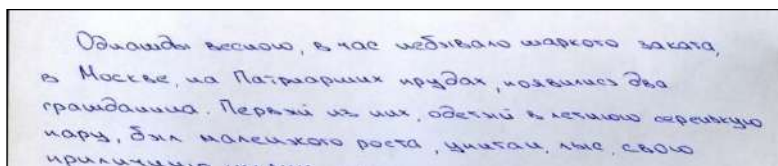 Однажды весною, в час небывало жаркого заката,
в Москве, на Патриарших прудах, появились два
гражданина. Первый из них, одетый в летнюю серенькую
пару, был маленького роста, упитан, лыс, свою
приличную